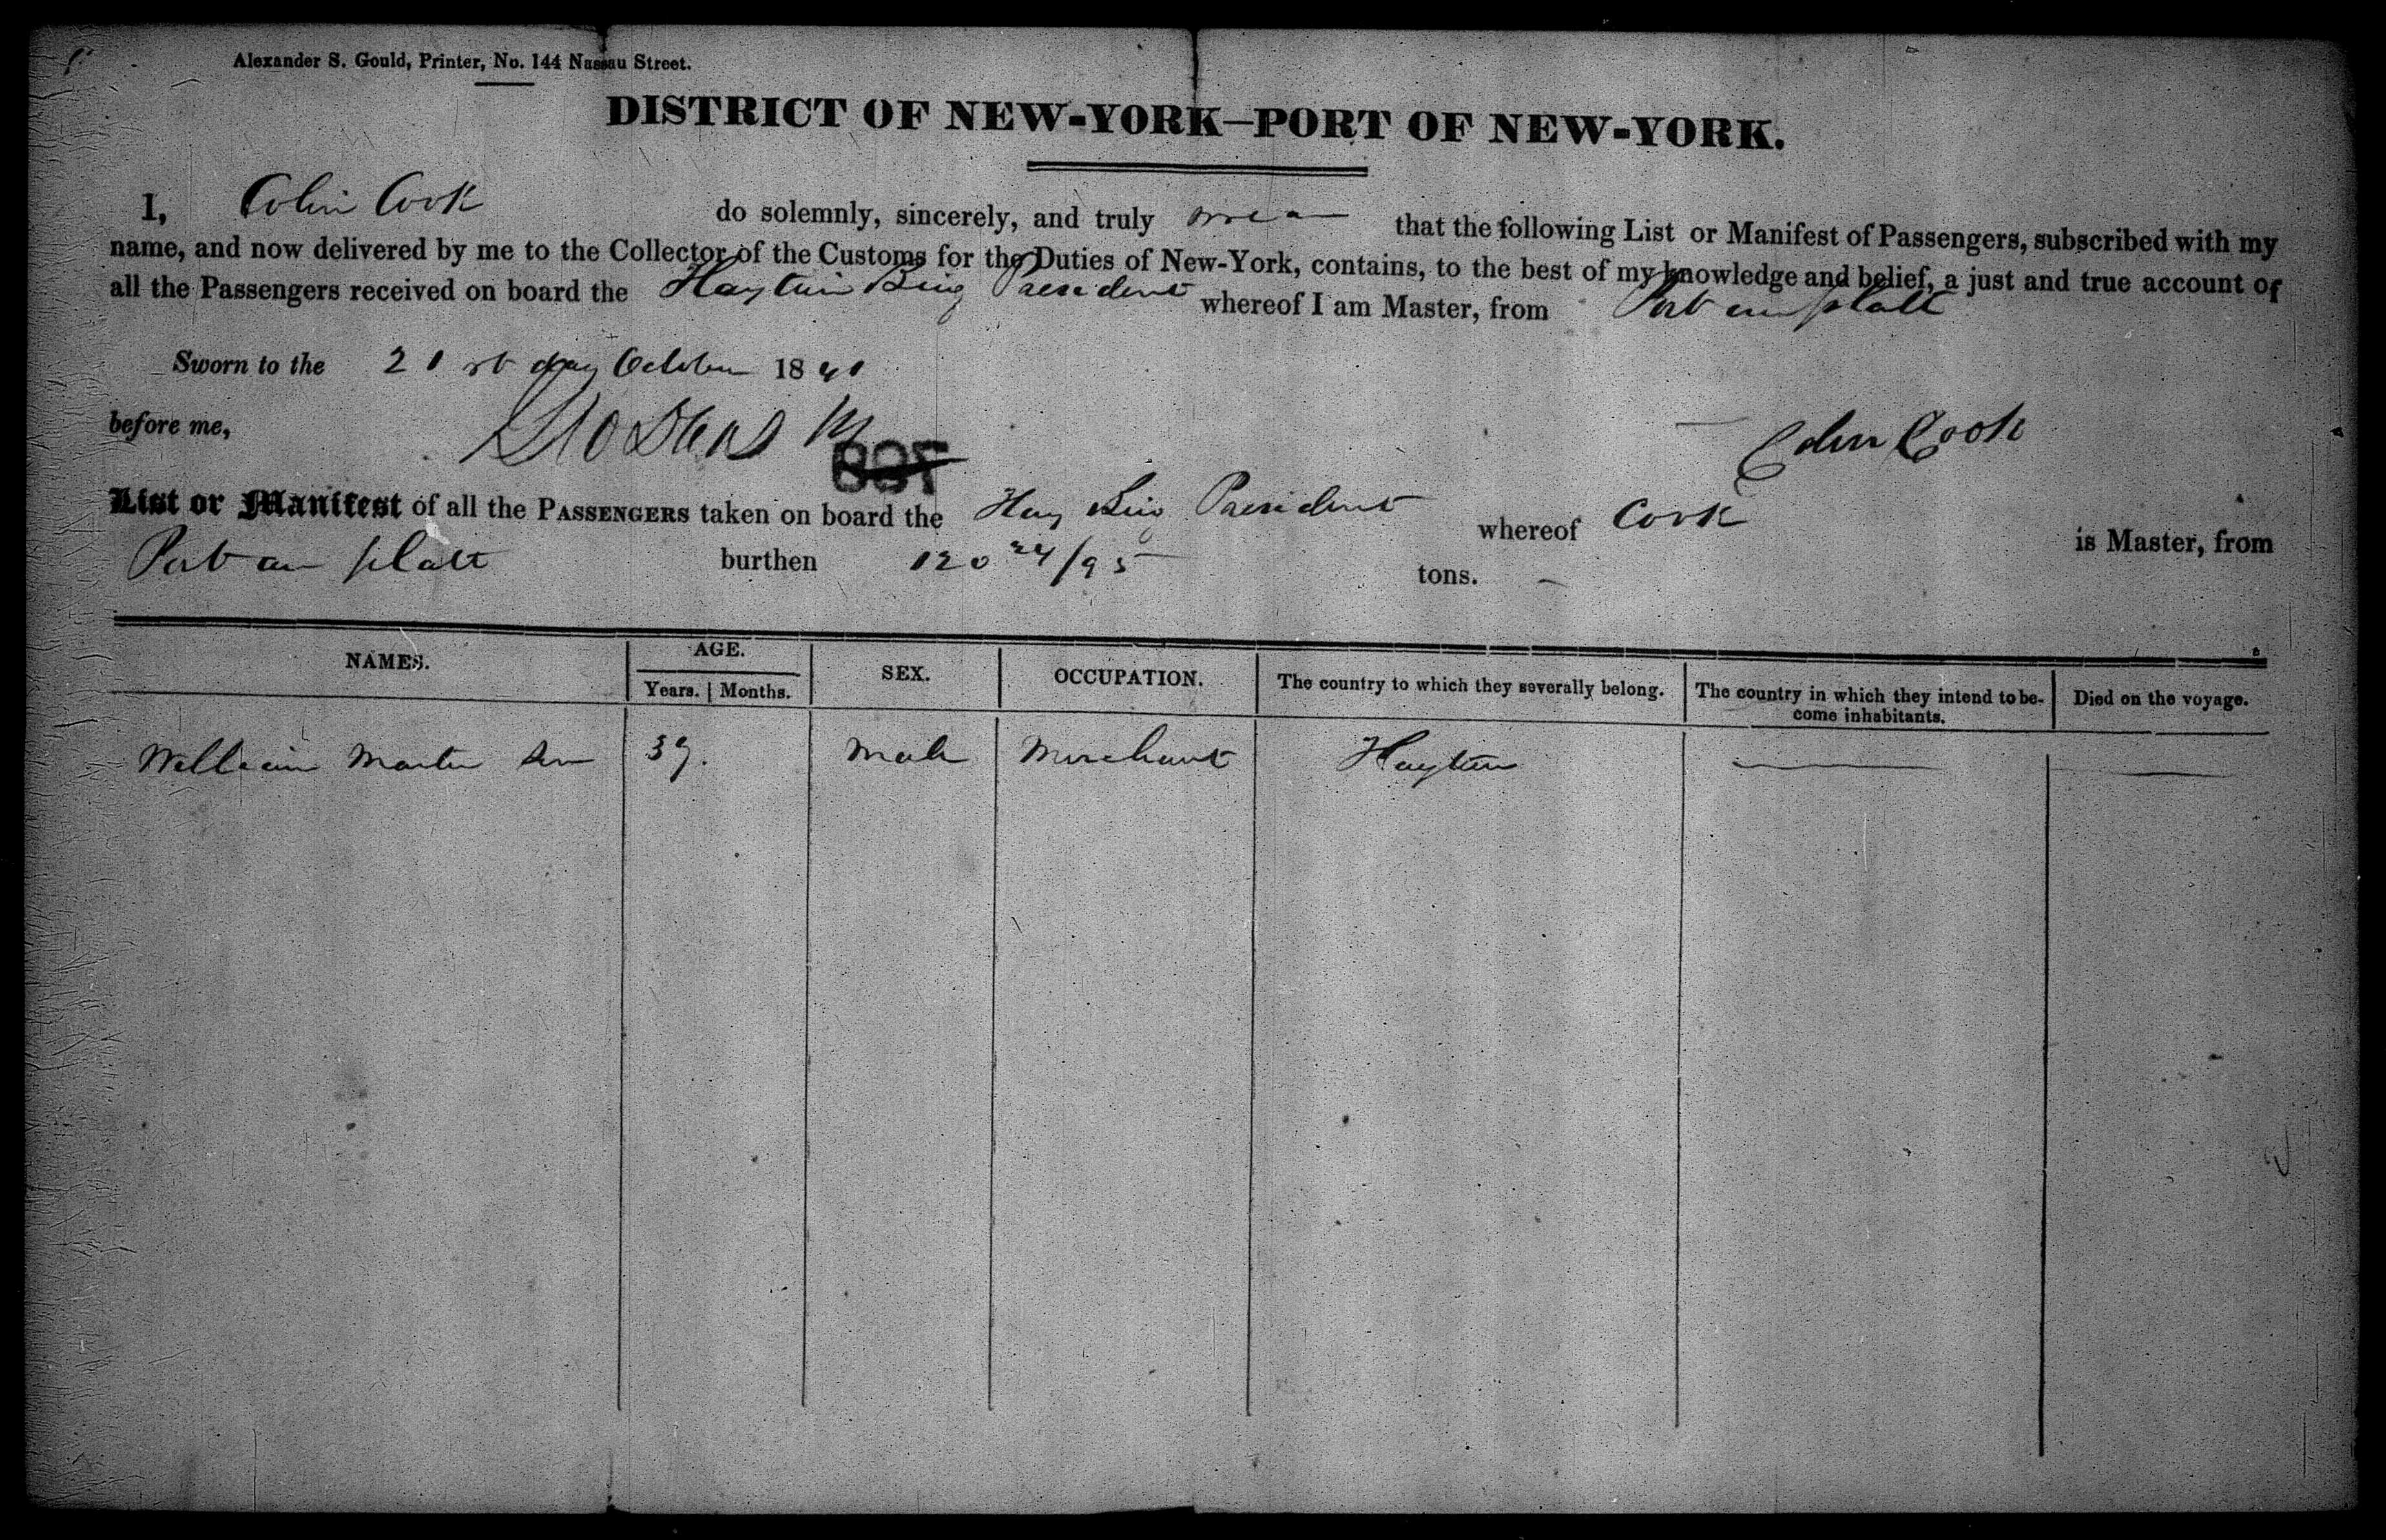 Alexander S. Gould, Printer, No. 144 Nassau Street.
DISTRICT OF NEW-YORK—PORT OF NEW-YORK.
I, Colin Cook do solemnly, sincerely, and truly that the following List or Manifest of Passengers, subscribed with my
name, and now delivered by me to the Collector of the Customs for the Duties of New-York, contains, to the best of my knowledge and belief, a just and true account of
all the Passengers received on board the Haytien Brig President whereof I am Master, from Port au platt
Sworn to the 21st day October 1841
before me,
Colin Cook
List or Manifest of all the PASSENGERS taken on board the Hay Brig President whereof Cook is Master, from
Port au platt burthen 120 24/95 tons.
NAMES. AGE. SEX. OCCUPATION. The country to which they severally belong. The country in which they intend to be- Died on the voyage.
Years. Months. come inhabitants.
William Martin 39. Male Merchant Haytien